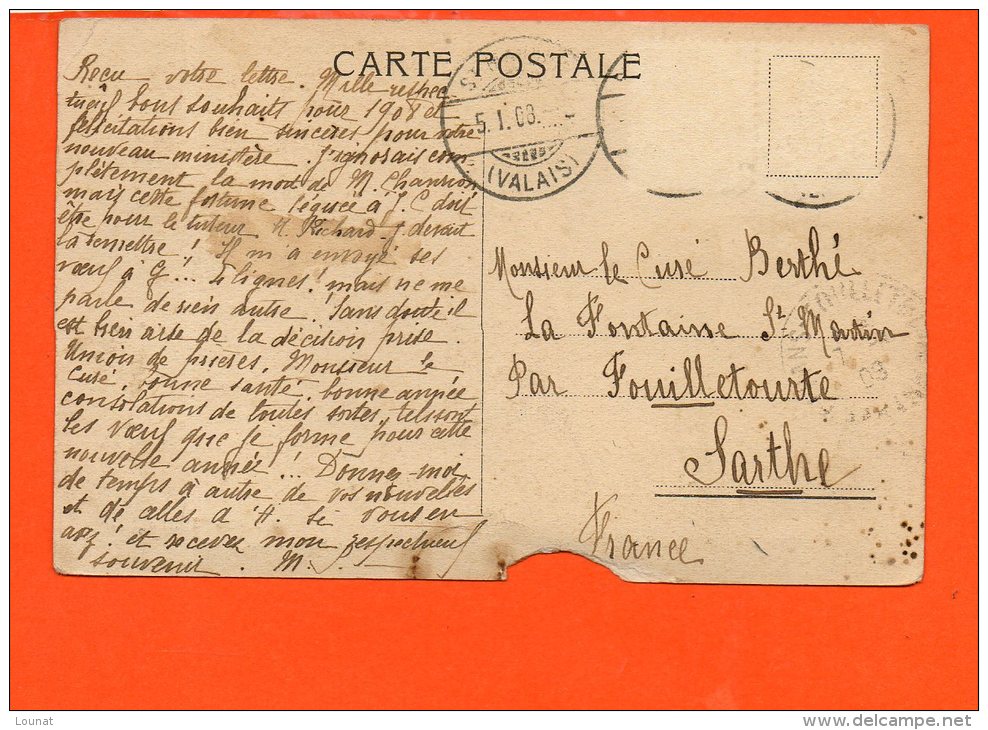 CARTE POSTALE
Recu votre lettre. Mille respec
tueux bons souhaits pour 1908 et
félicitations bien sincères pour votre
nouveau ministère. J'ignorais com
plètement la mort de M. Chanrion
mais cette fortune léguée à J. C doit
être pour le tuteur H. Richard j devait
la remettre! Il m'a envoyé ses
vœux à G!... 4 lignes! mais ne me
parle de rien autre. Sans doute il
est bien aise de la décision prise.
Union de prières, Monsieur le
Curé, bonne santé, bonne année
consolations de toutes sortes, tels sont
les vœux que je forme pour cette
nouvelle année!! Donnez-moi
de temps à autre de vos nouvelles
et de celles d'H. si vous en
avez! et recevez mon respectueux
souvenir. M. J.
5. I. 08.
(VALAIS)
Monsieur le Curé Berthé
La Fontaine St Martin
Par Fouilletourte
Sarthe
France
08
Lounat
www.delcampe.net